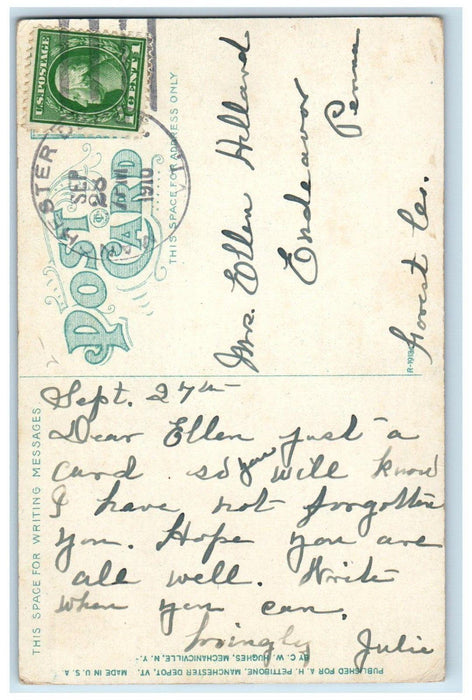 U.S. POSTAGE
1 CENT 1
SEP
28
1910
POST
CARD
THIS SPACE FOR ADDRESS ONLY
Mrs. Ellen Hillard
Endeavor
Penna
Forest Co.
THIS SPACE FOR WRITING MESSAGES
Sept. 27th
Dear Ellen just a
card so you will know
I have not forgotten
you. Hope you are
all well. Write
when you can.
Lovingly
Julie
PUBLISHED FOR A. H. PETTIBONE, MANCHESTER DEPOT, VT. MADE IN U.S.A
BY C. W. HUGHES, MECHANICVILLE, N. Y.